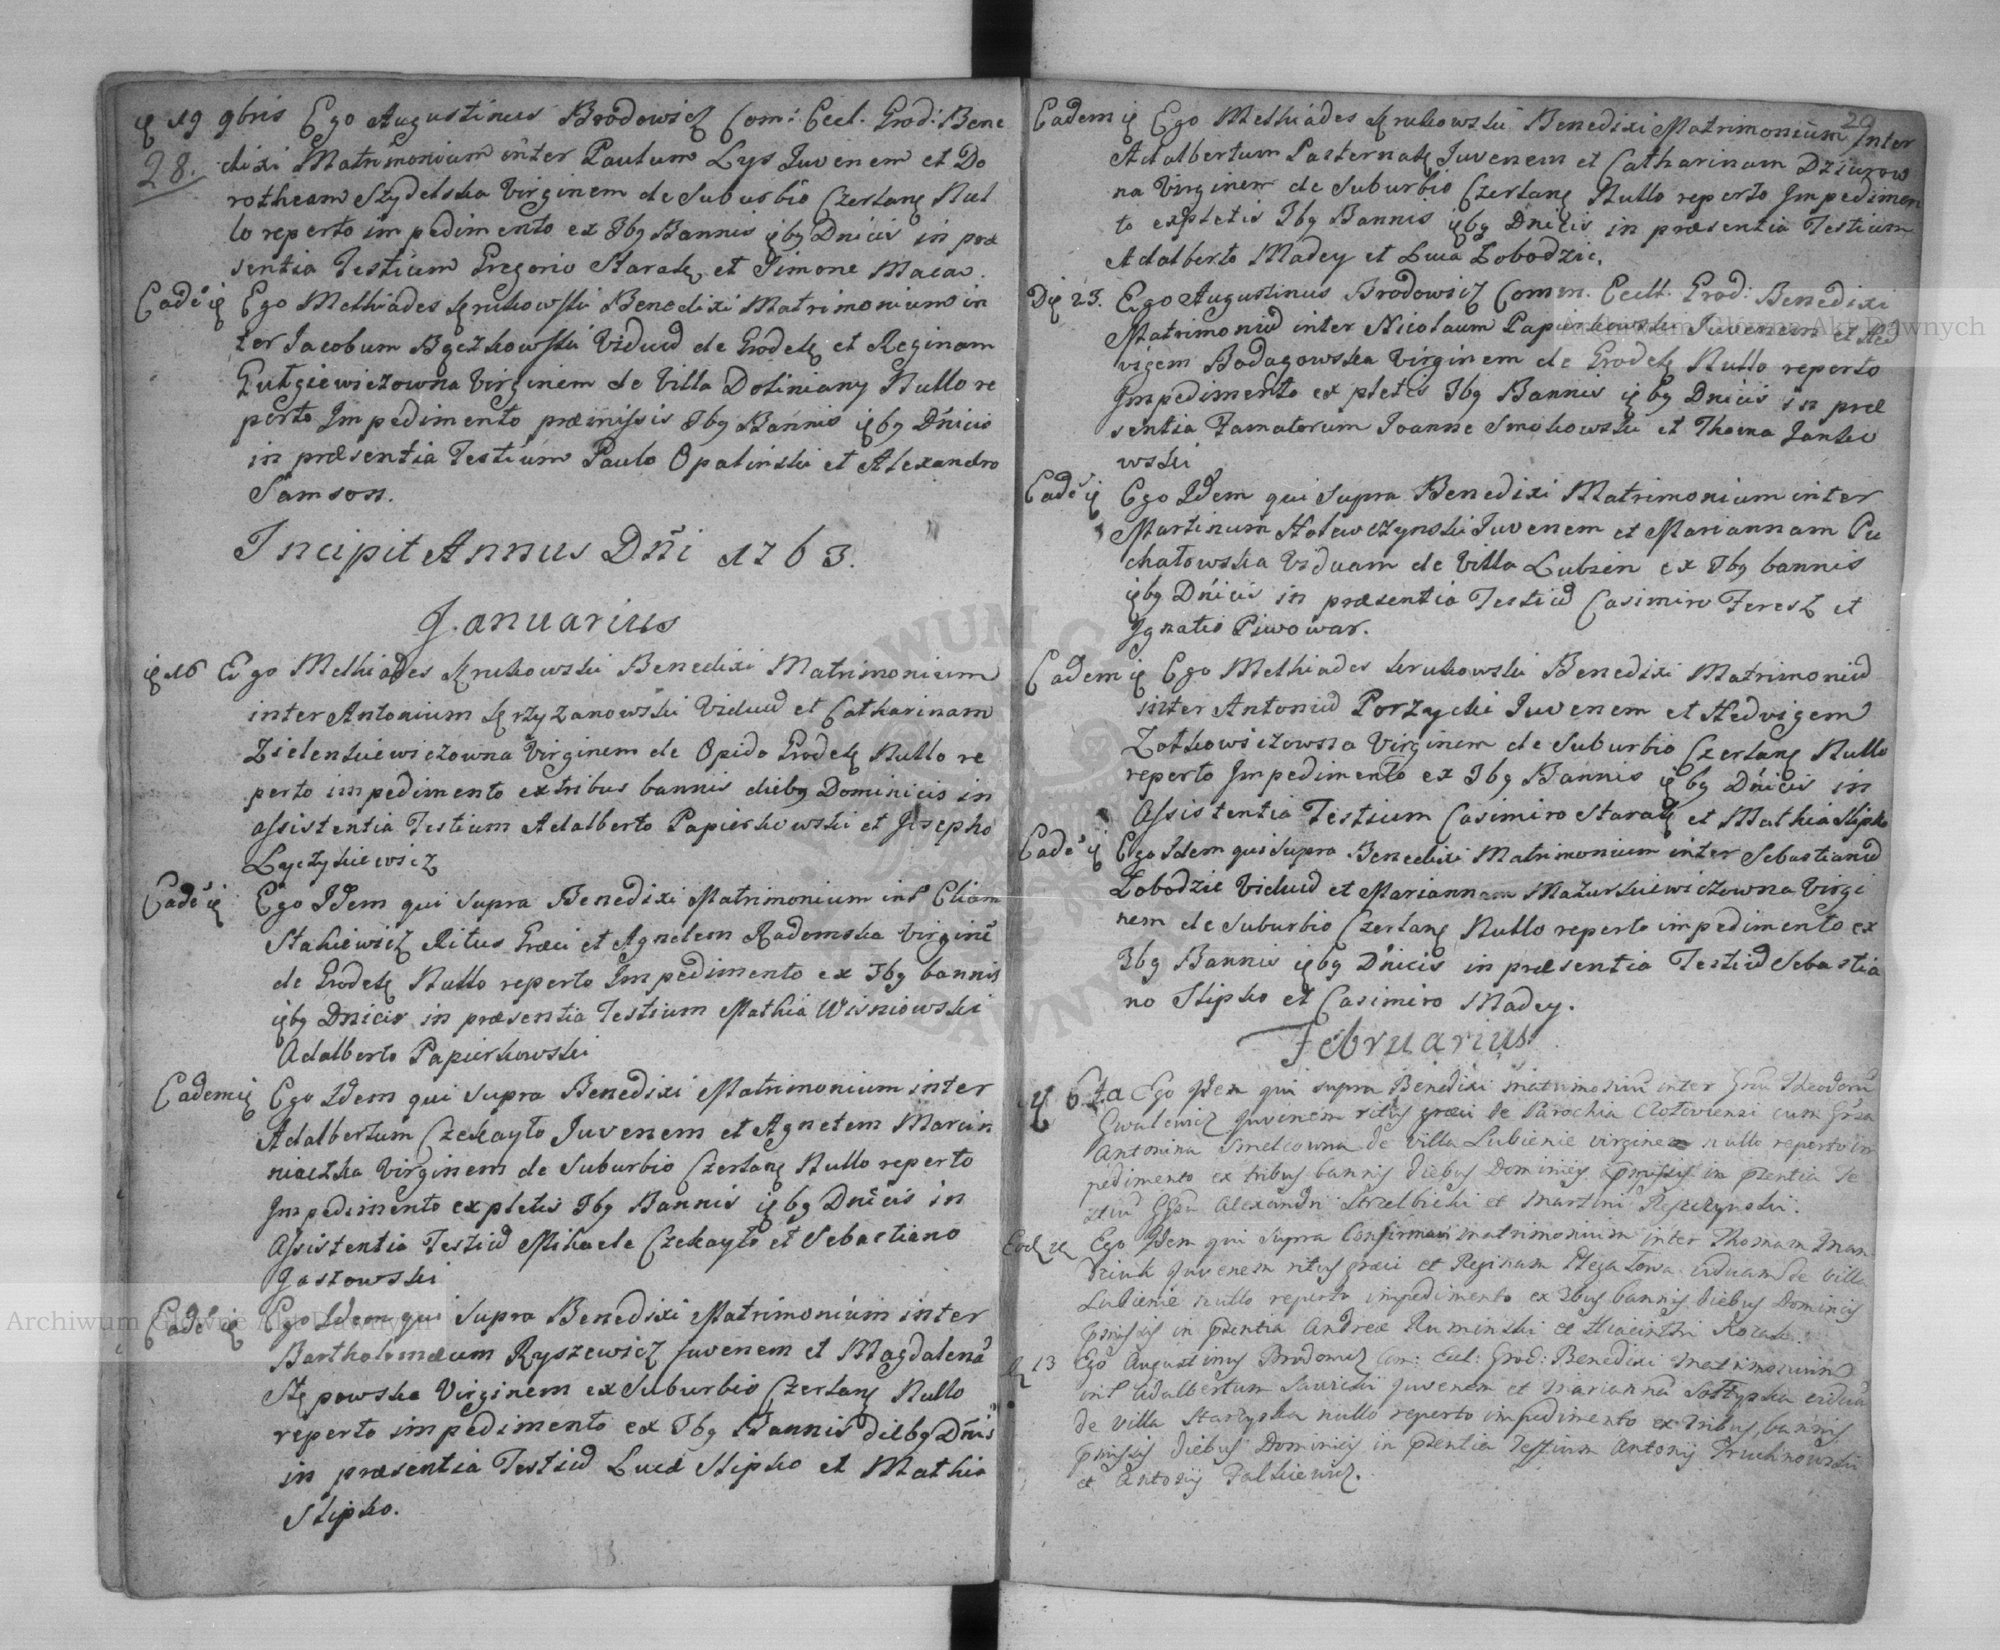 19 9bris Ego Augustinus Brodowicz Com: Eccl. Grod: Bene
28. dixi Matrimonium inter Paulum Lys Iuvenem et Do
rotheam Szydelska Virginem de Suburbio Czerlany Nul
lo reperto impedimento ex 3bq Bannis Dnicis in præ
sentia Testium Gregorio Starak et Simone Maca.
Eadē Ego Melhiades Krukowski Benedixi Matrimonium in
ter Jacobum Viduū de Grodek et Reginam
Gutgiewiczowna Virginem de Villa Doliniany Nullo re
perto Impedimento præmissis 3bq Bannis Dnicis
in præsentia Testium Paulo Opalinski et Alexandro
Samson.
Incipit Annus Dni 1763.
Januarius
16 Ego Melhiades Krukowski Benedixi Matrimonium
inter Antonium Krzyzanowski Viduū et Catharinam
Zielenkiewiczowna Virginem de Opido Grodek Nullo re
perto impedimento ex tribus bannis diebq Dominicis in
assistentia Testium Adalberto Papierkowski et Josepho
Lyczykiewicz
Eadē Ego Idem qui supra Benedixi Matrimonium int Eliam
Stakiewicz Ritus Græci et Agnetem Radomska Virginē
de Grodek Nullo reperto Impedimento ex 3bq bannis
Dnicis in præsentia Testium Mathia Wisniowski
Adalberto Papierkowski
Eadem Ego Idem qui supra Benedixi Matrimonium inter
Adalbertum Czekayło Iuvenem et Agnetem Marcin
niaczka Virginem de Suburbio Czerlany Nullo reperto
Impedimento expletis 3bq Bannis Dnicis in
Assistentia Testiū Mikaele Czekayło et Sebastiano
Gastowski
Eadē Ego Idem qui supra Benedixi Matrimonium inter
Bartholomæum Ryszewicz juvenem et Magdalenā
Stępowska Virginem ex Suburbio Czerlany Nullo
reperto impedimento ex 3bq Bannis diebq Dnis
in præsentia Testiū Lucæ Slipko et Mathia
Slipko.
29
Eadem Ego Melhiades Krukowski Benedixi Matrimonium Inter
Adalbertum Pasternak Iuvenem et Catharinam Dziurow
na Virginem de Suburbio Czerlany Nullo reperto Impedimen
to expletis 3bq Bannis Dnicis in præsentia Testium
Adalberto Madey et Luca Łobodzic.
23. Ego Augustinus Brodowicz Comm. Eccll. Grod: Benedixi
Matrimoniū inter Nicolaum Papierkowski Iuvenem et Hed
vigem Bodagowska Virginem de Grodek Nullo reperto
Impedimento expletis 3bq Bannis Dnicis in præ
sentia Famatorum Joanne Smokowski et Thoma Janko
wski
Eadē Ego Idem qui supra Benedixi Matrimonium inter
Martinum Holewczynski Iuvenem et Mariannam Pu
chałowska Viduam de Villa Lubien ex 3bq bannis
Dnicis in præsentia Testiū Casimiro Feresz et
Ignatio Piwowar.
Eadem Ego Melhiades Krukowski Benedixi Matrimoniū
inter Antoniū Porzycki Iuvenem et Hedvigem
Virginem de Suburbio Czerlany Nullo
reperto Impedimento ex 3bq Bannis Dnicis in
Assistentia Testium Casimiro Starak et Mathia Slipko
Eadē Ego Idem qui supra Benedixi Matrimonium inter Sebastianū
Łobodzic Viduū et Mariannam Mazurkiewiczowna Virgi
nem de Suburbio Czerlany Nullo reperto impedimento ex
3bq Bannis Dnicis in præsentia Testiū Sebastia
no Slipko et Casimiro Madey.
Februarius
6. Ego Idem qui supra Benedixi matrimoniū inter Theodorū
juvenem ritus græci de Parochia cum
Antonina Smelcowna de villa Lubienie virginem nullo reperto im
pedimento ex tribus bannis diebus Dominicis in Te
stiū Alexandri Strzelbicki et Martini
Ego Idem qui supra Confirmavi matrimonium inter Thomam
juvenem ritus græci et Reginam viduam de villa
Lubienie nullo reperto impedimento ex 3bus bannis diebus Dominicis
in Andreæ Ruminski et Hiacinthi
13 Ego Augustinus Brodowicz Com: Eccl: Grod: Benedixi matrimonium
int Adalbertum Sawicki juvenem et Mariannā Sołtyska viduā
de villa Starzyska nullo reperto impedimento ex tribus bannis
diebus Dominicis in Testium Antonij
et Antonij Falkiewicz.
Archiwum Główne Akt Dawnych
Archiwum Główne Akt Dawnych